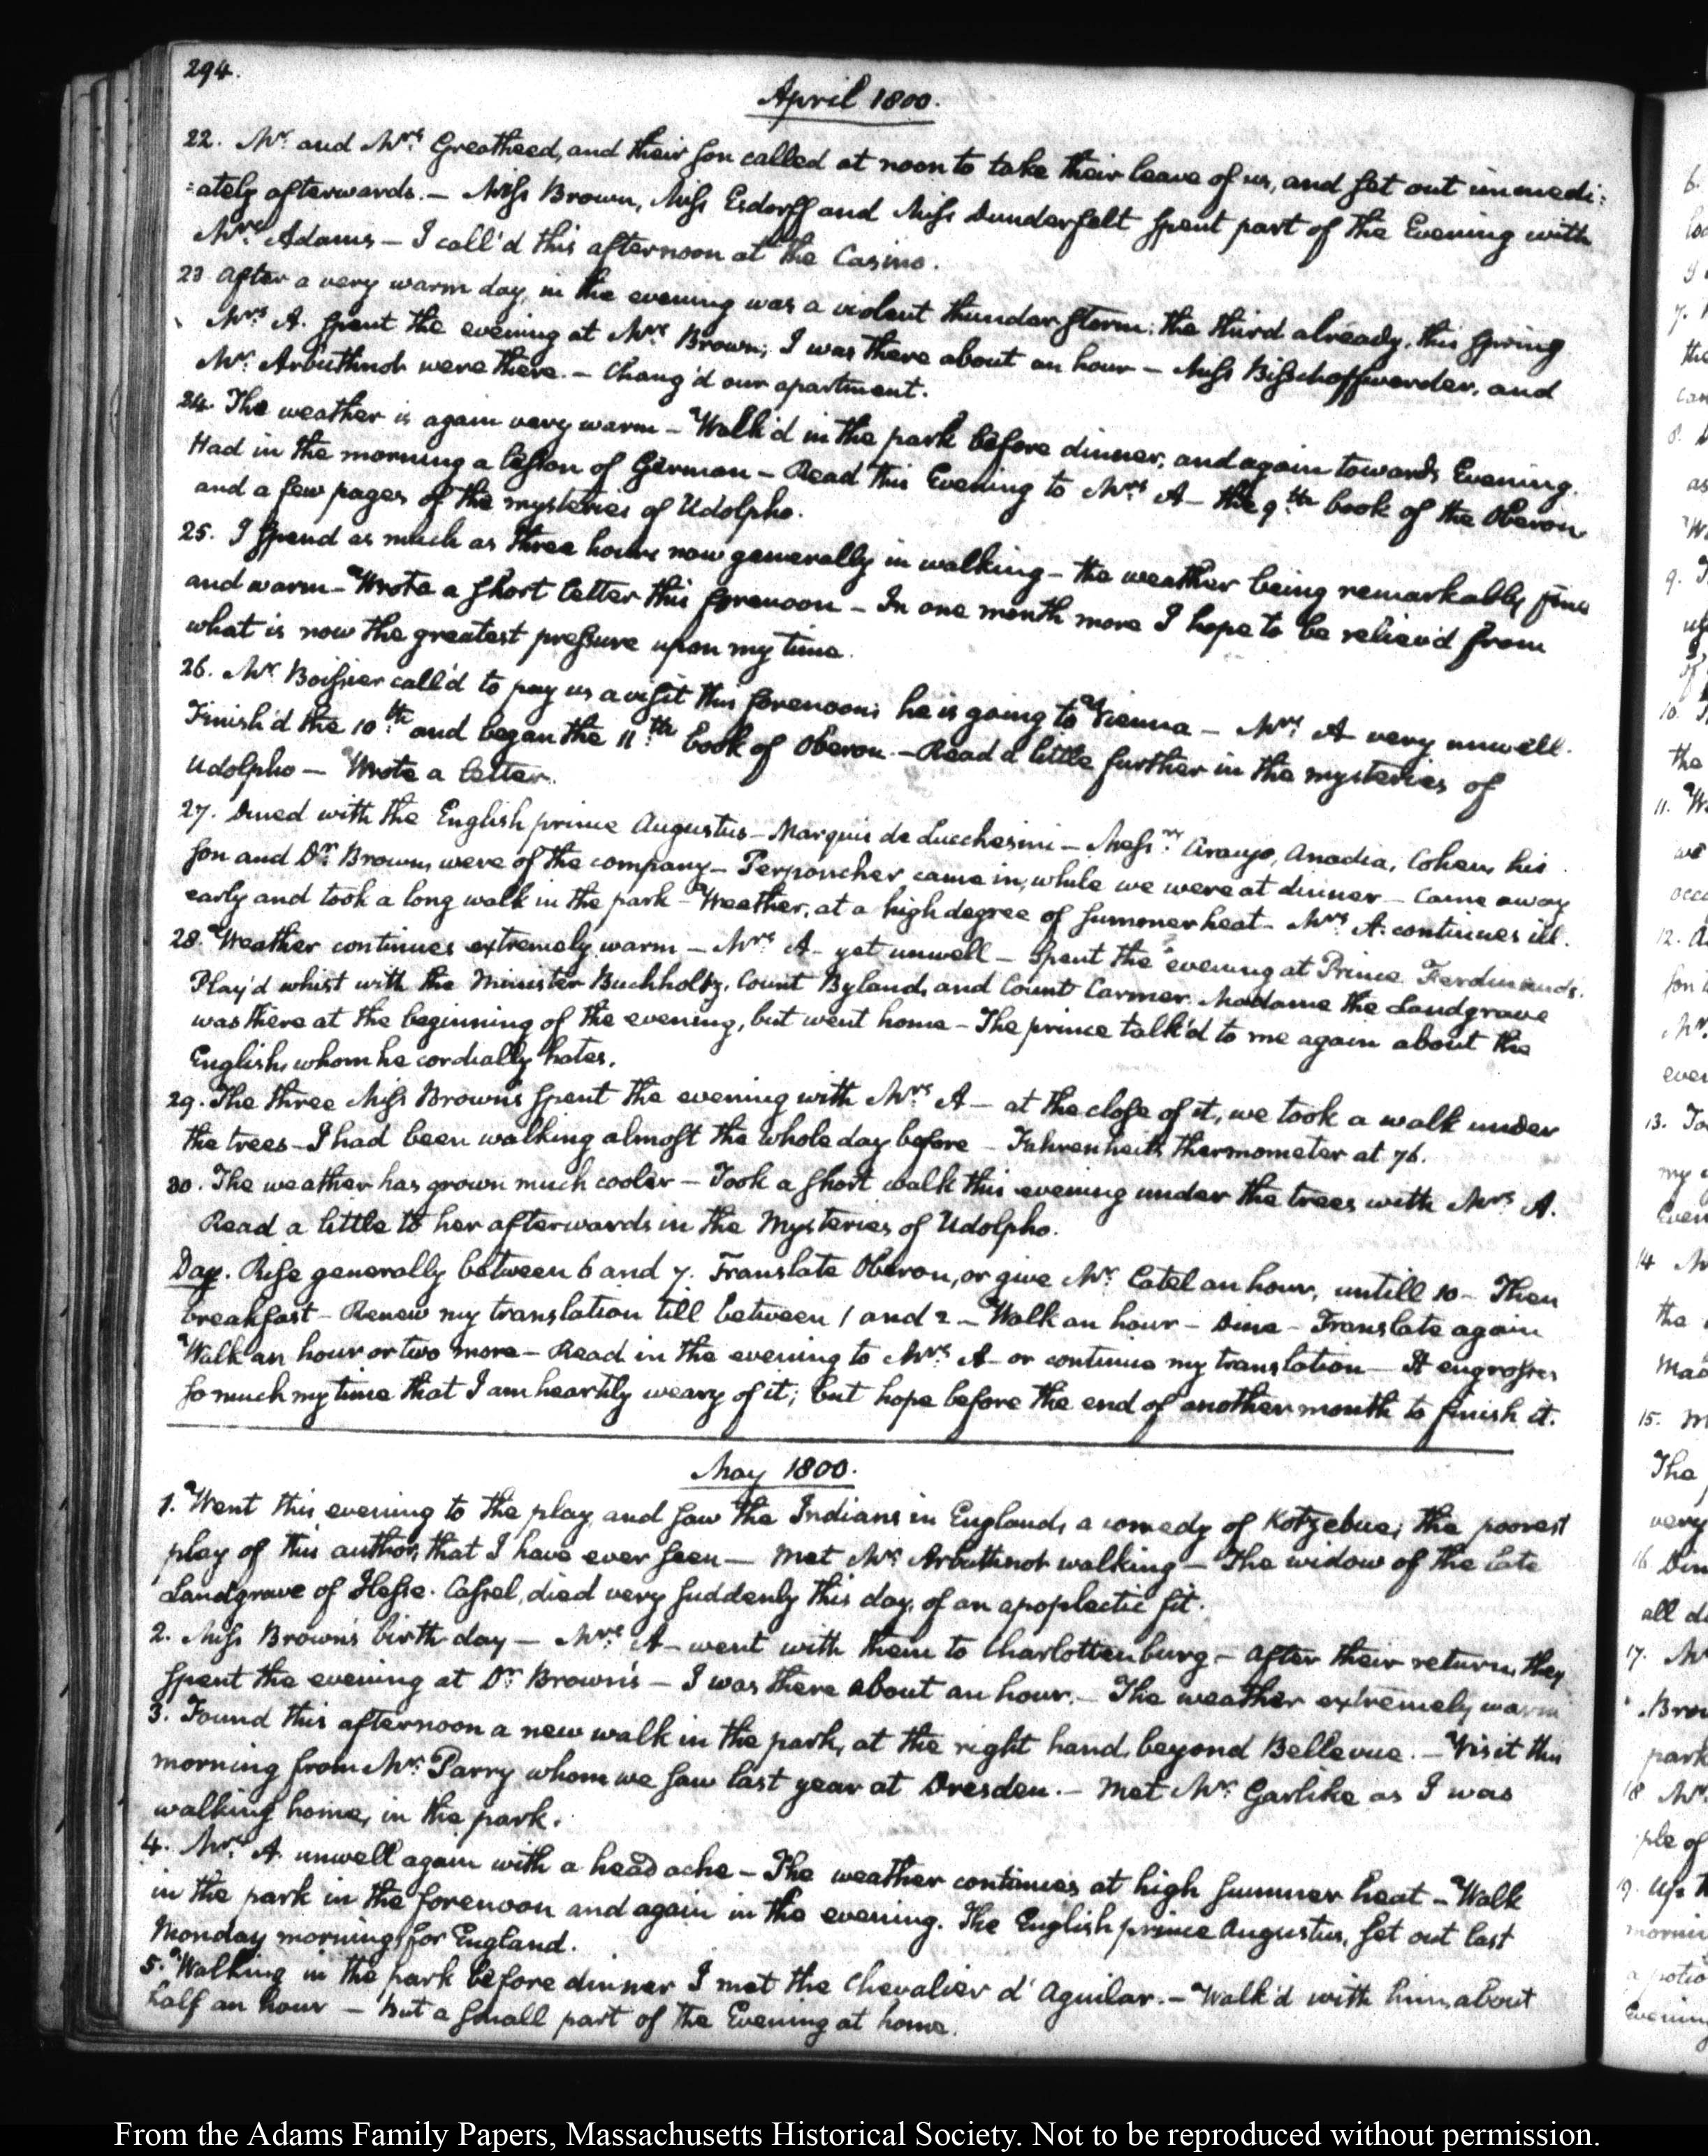 294.
April 1800.
22. Mr. and Mrs. Greatheed, and their son called at noon to take their leave of us, and set out immedi:
:ately afterwards. — Miss Brown, Miss Esdorff and Miss Dunderfelt spent part of the Evening with
Mrs. Adams — I call'd this afternoon at the Casino.
23 After a very warm day, in the evening was a violent thunder storm: the third already, this spring
Mrs. A. spent the evening at Mrs. Brown; I was there about an hour — Miss Bischoffwerder, and
Mr. Arbuthnot were there. — Chang'd our apartment.
24. The weather is again very warm — Walk'd in the park before dinner, and again towards Evening.
Had in the morning a lesson of German — Read this Evening to Mrs. A — the 9th. book of the Oberon
and a few pages of the mysteries of Udolpho.
25. I spend as much as three hours now generally in walking — the weather being remarkably fine
and warm — Wrote a short letter this forenoon — In one month more I hope to be reliev'd from
what is now the greatest pressure upon my time.
26. Mr. Boissier call'd to pay us a visit this forenoon; he is going to Vienna — Mrs. A very unwell.
Finish'd the 10th. and began the 11th. book of Oberon. — Read a little further in the mysteries of
Udolpho — Wrote a letter.
27. Dined with the English prince Augustus — Marquis de Lucchesini — Messrs. Araujo, Anadia, Cohen, his
son and Dr. Brown, were of the company — Perponcher came in, while we were at dinner — Came away
early and took a long walk in the park — Weather, at a high degree of summer heat — Mrs. A. continues ill.
28. Weather continues extremely warm — Mrs. A — yet unwell — Spent the evening at Prince Ferdinand's.
Play'd whist with the Minister Buchholtz, Count Byland, and Count Carmer. Madame the Landgrave
was there at the beginning of the evening, but went home — The prince talk'd to me again about the
English, whom he cordially hates.
29. The three Miss Browns spent the evening with Mrs. A — at the close of it, we took a walk under
the trees — I had been walking almost the whole day before — Fahrenheit's thermometer at 76.
30. The weather has grown much cooler — Took a short walk this evening under the trees with Mrs. A.
Read a little to her afterwards in the Mysteries of Udolpho.
Day. Rise generally between 6 and 7. Translate Oberon, or give Mr. Catel an hour, untill 10 — Then
breakfast — Renew my translation till between 1 and 2 — Walk an hour — Dine — Translate again
Walk an hour or two more — Read in the evening to Mrs. A — or continue my translation — It engrosses
so much my time that I am heartily weary of it; but hope before the end of another month to finish it.
May 1800.
1. Went this evening to the play, and saw the Indians in England, a comedy of Kotzebue; the poorest
play of this author, that I have ever seen — Met Mr. Arbuthnot walking — The widow of the late
Landgrave of Hesse-Cassel, died very suddenly this day, of an apoplectic fit.
2. Miss Brown's birth day — Mrs. A — went with them to Charlottenburg — After their return, they
spent the evening at Dr. Brown's — I was there about an hour. — The weather extremely warm
3. Found this afternoon a new walk in the park, at the right hand, beyond Bellevue. — Visit this
morning from Mr. Parry whom we saw last year at Dresden. — Met Mr. Garlike as I was
walking home, in the park.
4. Mrs. A. unwell again with a head ache — The weather continues at high summer heat — Walk
in the park in the forenoon and again in the evening. The English prince Augustus, set out last
Monday morning, for England.
5. Walking in the park before dinner I met the Chevalier d'Aguilar. — Walk'd with him, about
half an hour — But a small part of the Evening at home.
From the Adams Family Papers, Massachusetts Historical Society. Not to be reproduced without permission.